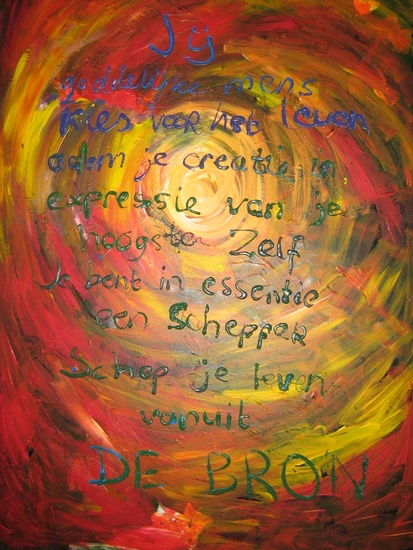 Jij
goddelijke mens
Kies voor het leven
adem je creatie in
expressie van je
hoogste Zelf
Je bent in essentie
een Schepper
Schep je leven
vanuit
DE BRON